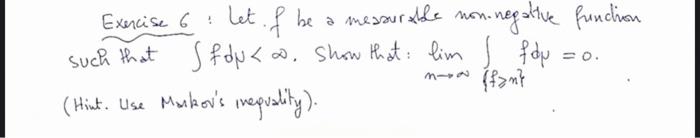 Exercise 6 : Let f be a measurable non-negative function
such that ∫ f dμ < ∞. Show that: lim_{n→∞} ∫_{{f≥n}} f dμ = 0.
(Hint. Use Markov's inequality).